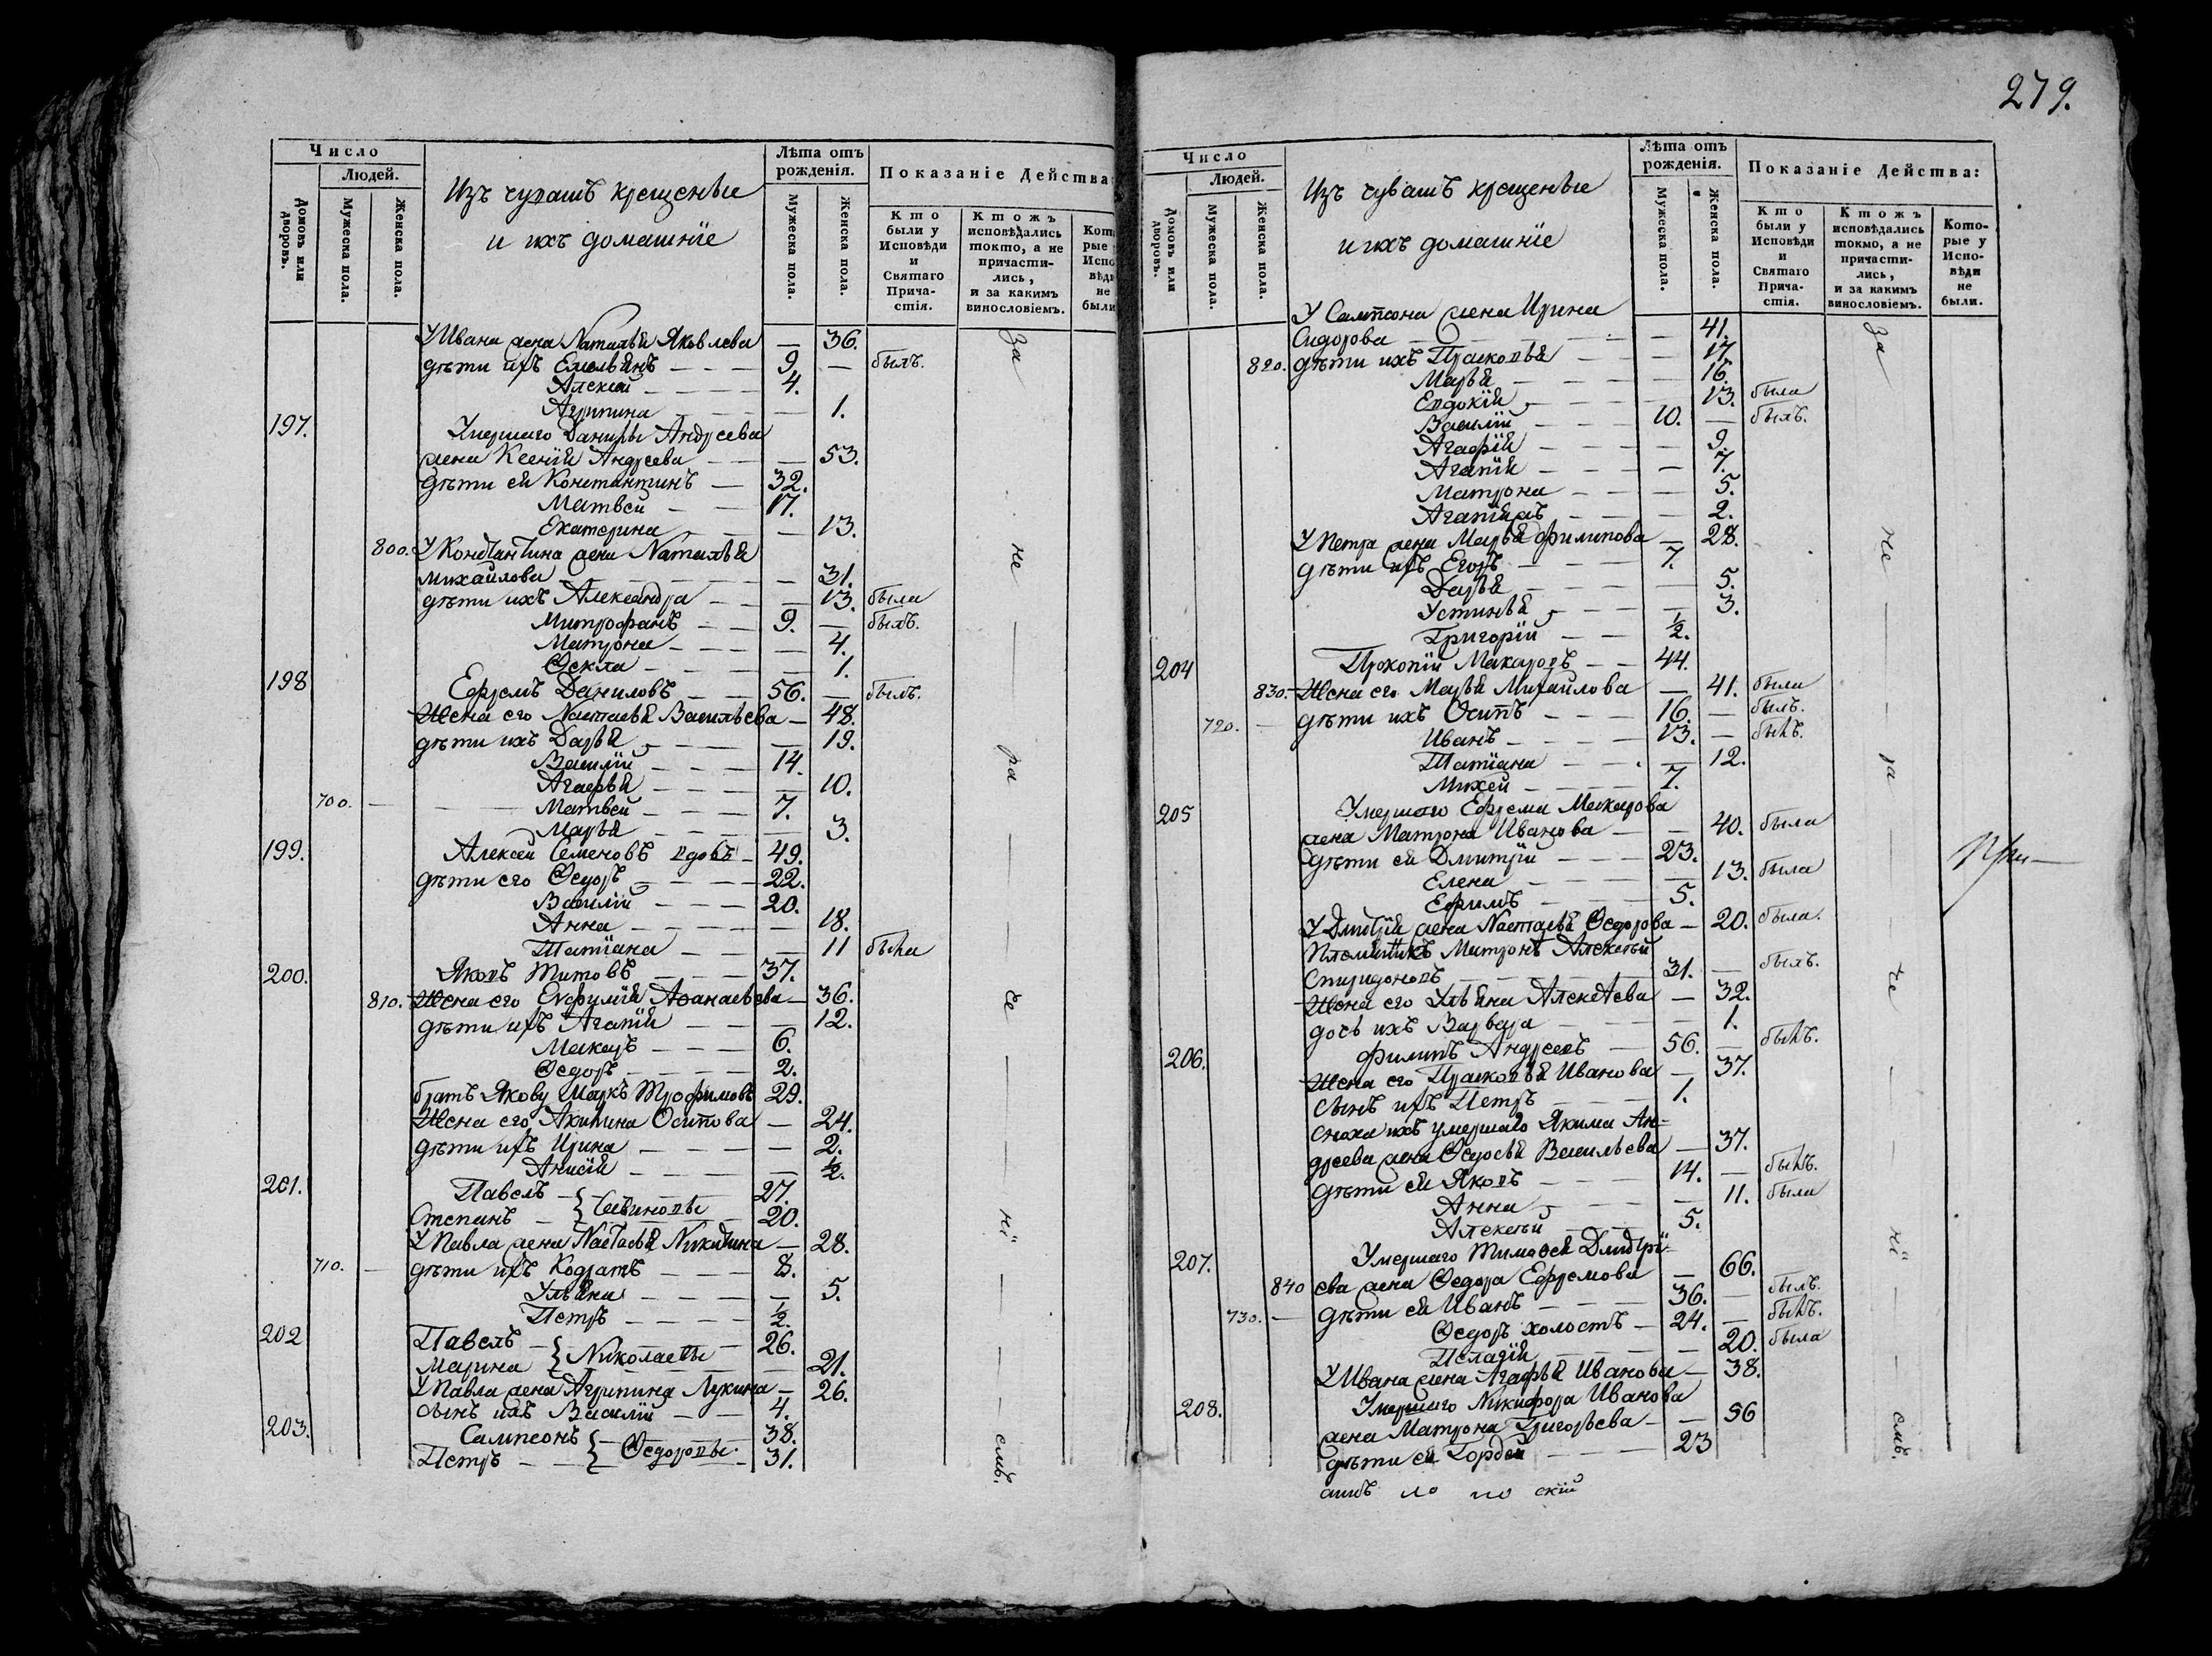 279.
Число
Людей.
Домовъ или дворовъ.
Мужеска пола.
Женска пола.
Изъ чувашъ крещеные
и ихъ домашніе
Лѣта отъ рожденія.
Мужеска пола.
Женска пола.
Показаніе Действа:
Кто были у Исповѣди и Святаго Причастія.
Ктожъ исповѣдались токмо, а не причастились, и за какимъ винословіемъ.
Кото
рые
Испо
вѣди
не
были
У Ивана жена Наталья Яковлева — 36.
дѣти ихъ Емельянъ — 9 — былъ.
Алексей — 4.
Агрипина — 1.
197. Умершаго Данилы Андреева
жена Ксенія Андреева — 53.
дѣти ей Константинъ — 32.
Матвей — 17.
Екатерина — 13.
800. У Константина жена Наталья
Михайлова — 31.
дѣти ихъ Александра — 13. была
Митрофанъ — 9. — былъ.
Матрона — 4.
Ѳекла — 1.
198 Ефремъ Даниловъ — 56. — былъ.
Жена его Настасья Васильева — 48.
дѣти ихъ Дарья — 19.
Василій — 14.
Агафья — 10.
700. — Матвей — 7.
Марья — 3.
199. Алексей Семеновъ вдовъ — 49.
дѣти его Ѳедоръ — 22.
Василій — 20.
Анна — 18.
Татіана — 11 была
200. Яковъ Титовъ — 37.
810. Жена его Евфимія Аѳанасьева — 36.
дѣти ихъ Агапія — 12.
Макаръ — 6.
Ѳедоръ — 2.
братъ Якову Маркъ Трофимовъ 29.
Жена его Акилина Осипова — 24.
дѣти ихъ Ирина — 2.
Анисія — ½.
201. Павелъ — 27.
Степанъ — } Савиновы — 20.
У Павла жена Настасья Никитина — 28.
710. — дѣти ихъ Кодратъ — 8.
Ульяна — 5.
Петръ — ½.
202 Павелъ — 26.
Марина } Николаевы — 21.
У Павла жена Агрипина Лукина — 26.
сынъ ихъ Василій — 4.
203. Сампсонъ — 38.
Петръ — } Ѳедоровы. — 31.
за — не — ра — че — ні — емъ.
Число
Людей.
Домовъ или дворовъ.
Мужеска пола.
Женска пола.
Изъ чувашъ крещеные
и ихъ домашніе
Лѣта отъ рожденія.
Мужеска пола.
Женска пола.
Показаніе Действа:
Кто были у Исповѣди и Святаго Причастія.
Ктожъ исповѣдались токмо, а не причастились, и за какимъ винословіемъ.
Которые у Исповѣди не были.
У Сампсона жена Ирина
Сидорова — 41.
820. дѣти ихъ Прасковья — 17.
Марья — 16.
Евдокія — 13. была
Василій — 10. — былъ.
Агафія — 9.
Агапія — 7.
Матрона — 5.
2.
У Петра жена Марья Филипова — 28.
дѣти ихъ Егоръ — 7.
Дарья — 5.
Устинья — 3.
Григорій — ½.
204 Прокопій Макаровъ — 44.
830. Жена его Марья Михайлова — 41. была
720. — дѣти ихъ Осипъ — 16. — былъ.
Иванъ — 13. — былъ.
Татіана — 12.
Михей — 7.
205 Умершаго Ефрема Макарова
жена Матрона Иванова — 40. была
дѣти ей Дмитрій — 23.
Елена — 13. была
Ефимъ — 5.
У Дмитрія жена Настасья Ѳедорова — 20. была.
Племянникъ Матронѣ Алексей
Спиридоновъ — 31. — былъ.
Жена его Ульяна Алексеева — 32.
дочь ихъ Варвара — 1.
206. Филипъ Андреевъ — 56. — былъ.
Жена его Прасковья Иванова — 37.
сынъ ихъ Петръ — 1.
сноха ихъ умершаго Якима Ан-
дреева жена Ѳедосья Васильева — 37.
дѣти ей Яковъ — 14. — былъ.
Анна — 11. была
Алексей — 5.
207. Умершаго Тимоѳея Дмитрі-
840 ева жена Ѳедора Ефремова — 66.
730. — дѣти ей Иванъ — 36. — былъ.
Ѳедоръ холостъ — 24. — былъ.
Пелагія — 20. была
У Ивана жена Агафья Иванова — 38.
208. Умершаго Никифора Иванова
жена Матрона Григорьева — 56
дѣти ей Гордей — 23
за — не — ра — че — ні — емъ.
При—